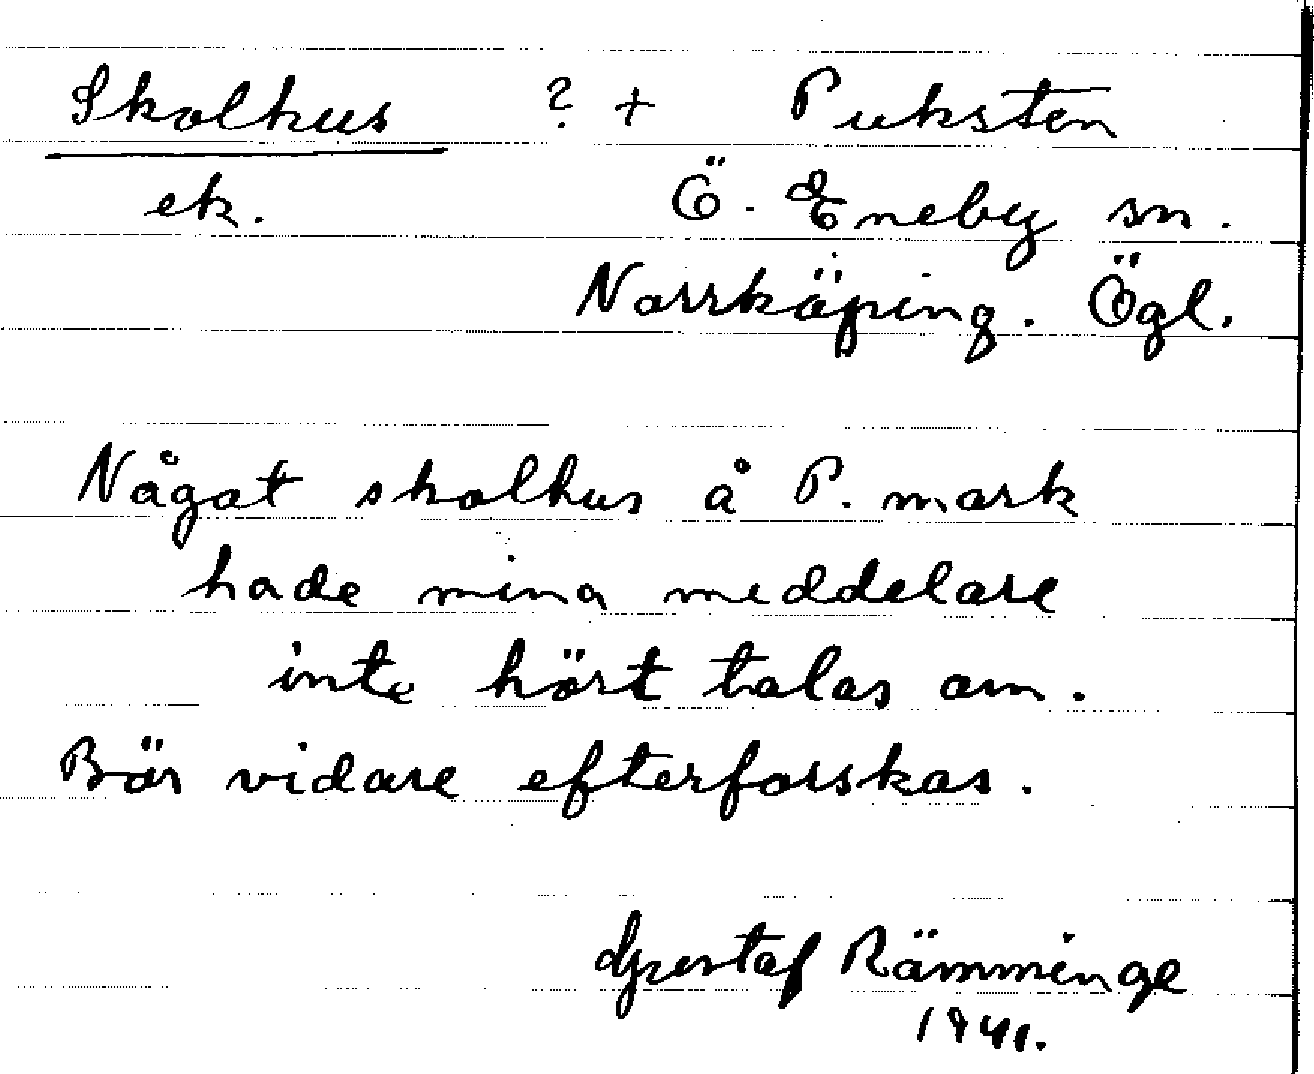 Skolhus ? + Puksten
ek. Ö. Eneby sn.
Norrköping. Ögl.
Något skolhus å P. mark
hade mina meddelare
inte hört talas om.
Bör vidare efterforskas.
Gustaf Rämminge
1941.